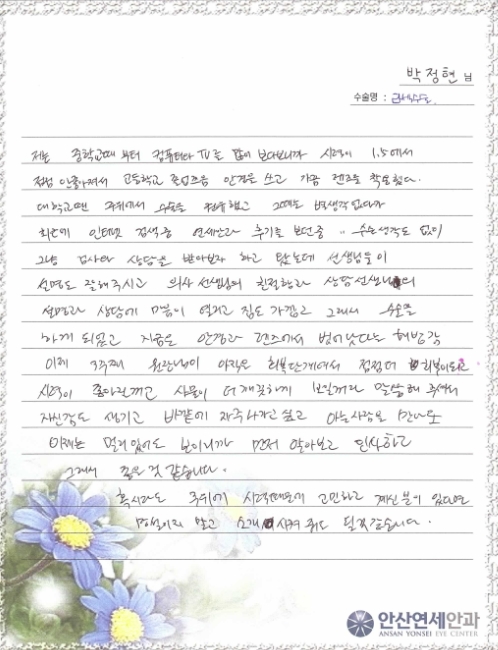 박정현 님
수술명 :
저는 중학교때 부터 컴퓨터나 TV를 많이 보다보니까 시력이 1.5에서
점점 안좋아져서 고등학교 졸업즈음 안경을 쓰고 가끔 렌즈를 착용했다.
대학교땐 주위에서 수술을 했고 그때도 별생각 없다가
최근에 인터넷 검색중 연세안과 후기를 보던중 .. 수술생각도 없이
그냥 검사와 상담을 받아보자 하고 왔는데 선생님들이
설명도 잘해주시고 의사 선생님의 친절함과 상담선생님의
설명과 상담에 마음이 열리고 집도 가깝고 그래서 수술을
하게 되었고 지금은 안경과 렌즈에서 벗어났다는 해방감
이제 3주째 원장님이 아직은 회복단계여서 점점더 회복이되고
시력이 좋아질꺼고 사물이 더 깨끗하게 보일꺼라 말씀해 주셔서
자신감도 생기고 바깥에 자주나가고 싶고 아는사람을 만나도
이제는 멀리있어도 보이니까 먼저 알아보고 인사하고
그래서 좋은 것 같습니다.
혹시라도 주위에 시력때문에 고민하고 계신분이 있다면
라고 소개 시켜 줘도 될것같습니다.
안산연세안과
ANSAN YONSEI EYE CENTER